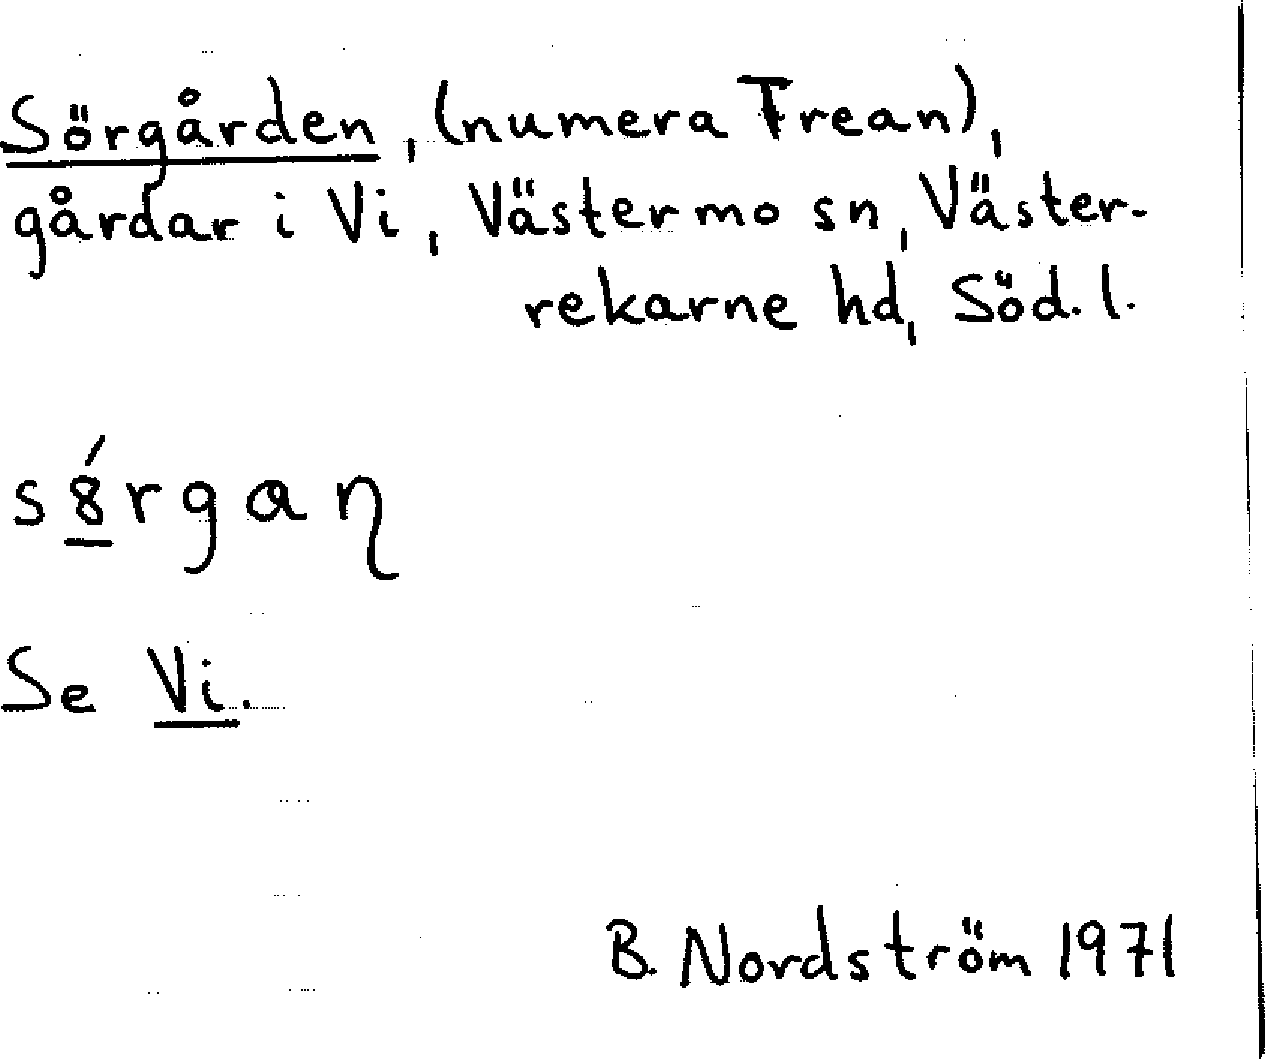 Sörgården, (numera Frean),
gårdar i Vi, Västermo sn, Väster-
rekarne hd, Söd. l.
s8́rgaꞃ
Se Vi.
B. Nordström 1971